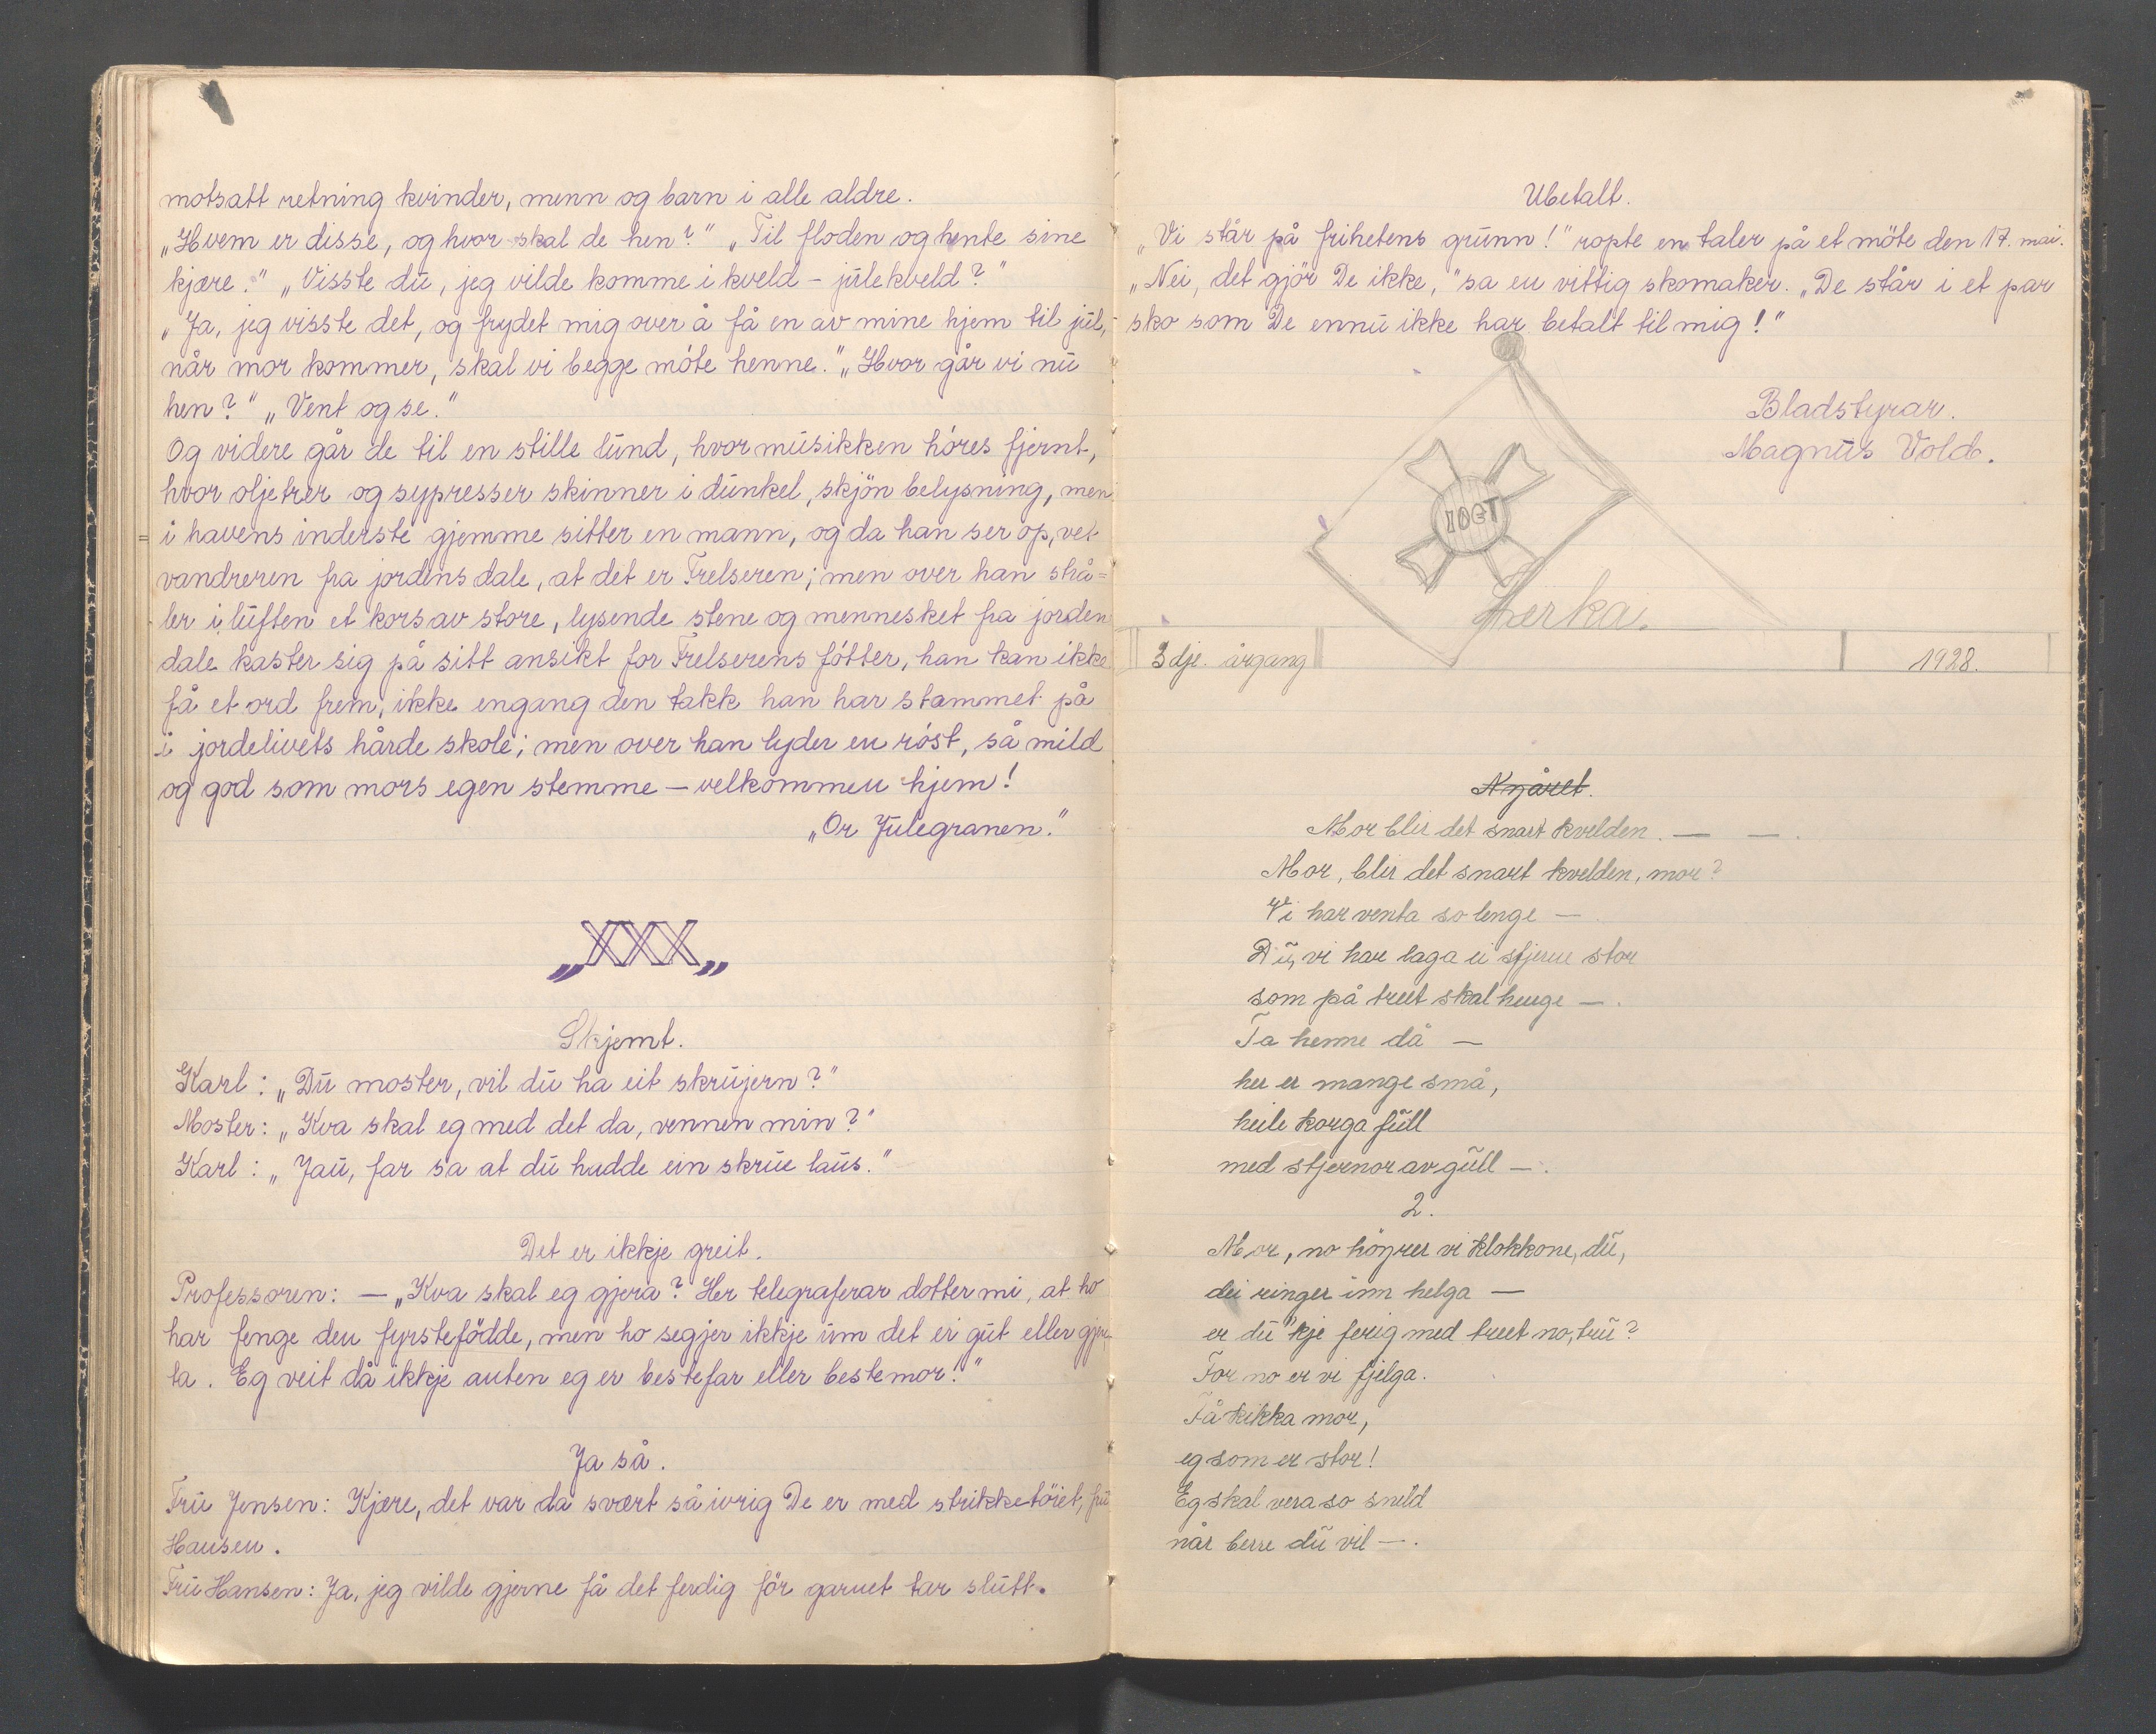 motsatt retning kvinder, menn og barn i alle aldre.
„Hvem er disse, og hvor skal de hen?" „Til floden og hente sine
kjære." „Visste du, jeg vilde komme i kveld - julekveld?"
„Ja, jeg visste det, og frydet mig over å få en av mine hjem til jul,
når mor kommer, skal vi begge möte henne." „Hvor går vi nu
hen?" „Vent og se."
Og videre går de til en stille lund, hvor musikken höres fjernt,
hvor oljetrer og sypresser skinner i dunkel, skjön belysning, men
i havens inderste gjemme sitter en mann, og da han ser op, vet
vandreren fra jordens dale, at det er Frelseren; men over han strå=
ler i luften et kors av store, lysende stene og mennesket fra jorden
dale kaster sig på sitt ansikt for Frelserens fötter, han kan ikke
få et ord frem, ikke engang den takk han har stammet på
i jordelivets hårde skole; men over han lyder en röst, så mild
og god som mors egen stemme — velkommen hjem!
„Or Julegranen."
„XXX„
Skjemt.
Karl: „Du moster, vil du ha eit skrujern?"
Moster: „Kva skal eg med det da, vennen min?"
Karl: „Jau, far sa at du hadde ein skrue laus."
Det er ikkje greit.
Professoren: — „Kva skal eg gjera? Her telegraferar dotter mi, at ho
har fenge den fyrstefödde, men ho segjer ikkje um det er gut eller gjen-
ta. Eg veit då ikkje anten eg er bestefar eller bestemor!"
Ja så.
Fru Jensen: Kjære, det var da svært så ivrig De er med strikketöiet, fru
Hansen.
Fru Hansen: Ja, jeg vilde gjerne få det ferdig för garnet tar slutt.
Ubetalt.
„Vi står på frihetens grunn!" ropte en taler på et möte den 17. mai.
„Nei, det gjör De ikke," sa en vittig skomaker. „De står i et par
sko som De ennu ikke har betalt til mig!"
Bladstyrar.
Magnus Vold.
IDGT
Herka.
3dje. årgang
1928.
Nyåret.
Mor blir det snart kvelden. — —.
Mor, blir det snart kvelden, mor?
Vi har venta so lenge —.
Du, vi har laga ei stjerne stor
som på treet skal henge —.
Ta henne då —
her er mange små,
heile korga full
med stjernor av gull —.
2.
Mor, no höyrer vi klokkone, du,
dei ringer inn helga —
er du "kje ferig med treet no, tru?
For no er vi fjelga.
Få kikka mor,
eg som er stor!
Eg skal vera so snild
når berre du vil —.